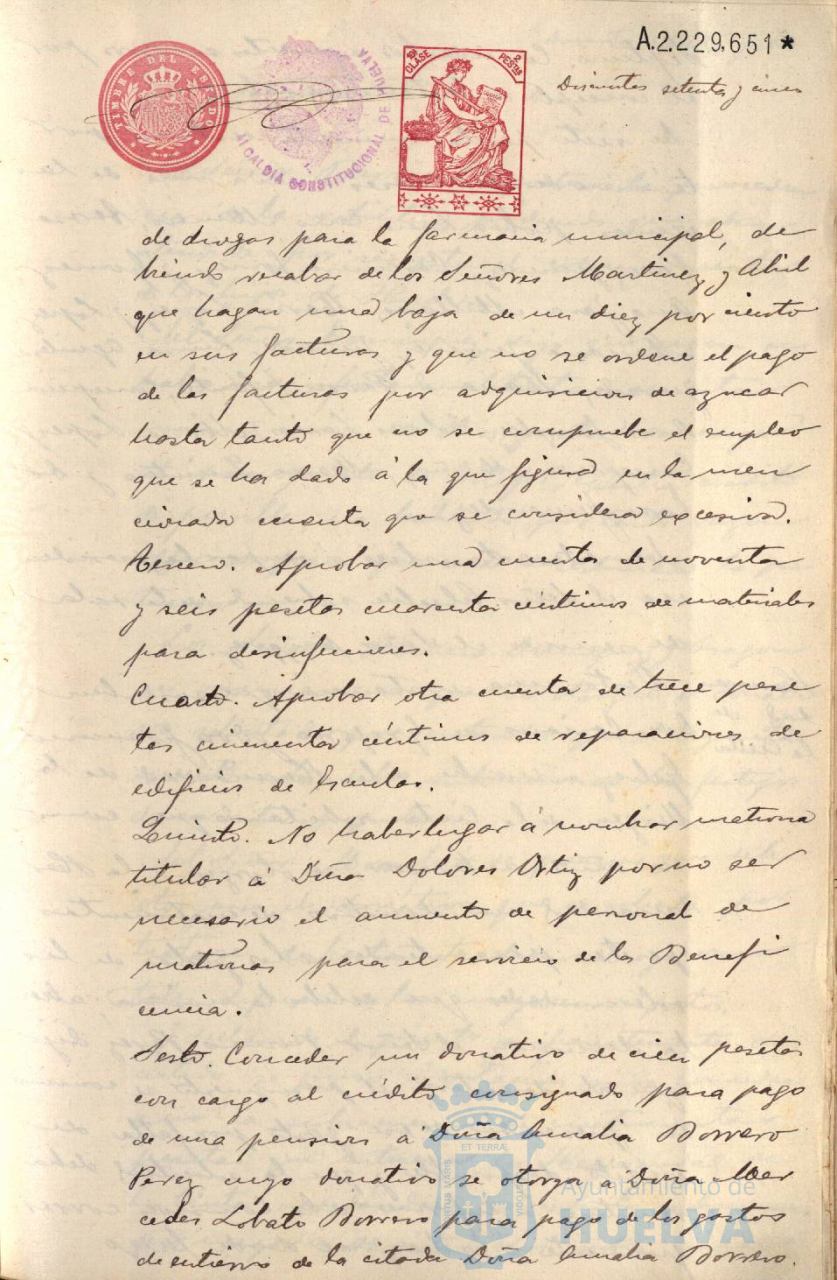 A.2.229.651*
TIMBRE DEL ESTADO
ALCALDIA CONSTITUCIONAL DE HUELVA
10ª CLASE 2 PESTAS
Doscientos setenta y cinco
de drogas para la farmacia municipal, de
biendo recabar de los Señores Martinez y Abril
que hagan una baja de un diez por ciento
en sus facturas y que no se ordene el pago
de las facturas por adquisicion de azucar
hasta tanto que no se compruebe el empleo
que se ha dado á la que figura en la men
cionada cuenta que se considera excesiva.
Tercero. Aprobar una cuenta de noventa
y seis pesetas cuarenta céntimos de materiales
para desinfecciones.
Cuarto. Aprobar otra cuenta de trece pese
tas cincuenta céntimos de reparaciones de
edificios de Escuelas.
Quinto. No haber lugar á nombrar matrona
titular á Doña Dolores Ortiz por no ser
necesario el aumento de personal de
matronas para el servicio de la Benefi
cencia.
Sesto. Conceder un donativo de cien pesetas
con cargo al crédito consignado para pago
de una pension á Doña Amalia Borrero
Perez cuyo donativo se otorga á Doña Mer
cedes Lobato Borrero para pago de los gastos
de entierro de la citada Doña Amalia Borrero.
ET TERRÆ
Ayuntamiento de
HUELVA